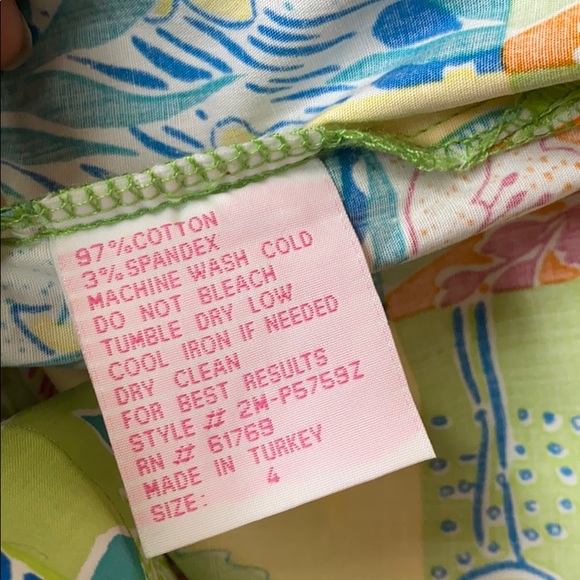 97% COTTON
3% SPANDEX
MACHINE WASH COLD
DO NOT BLEACH
TUMBLE DRY LOW
COOL IRON IF NEEDED
DRY CLEAN
FOR BEST RESULTS
STYLE # 2M-P5759Z
RN # 61769
MADE IN TURKEY
SIZE: 4